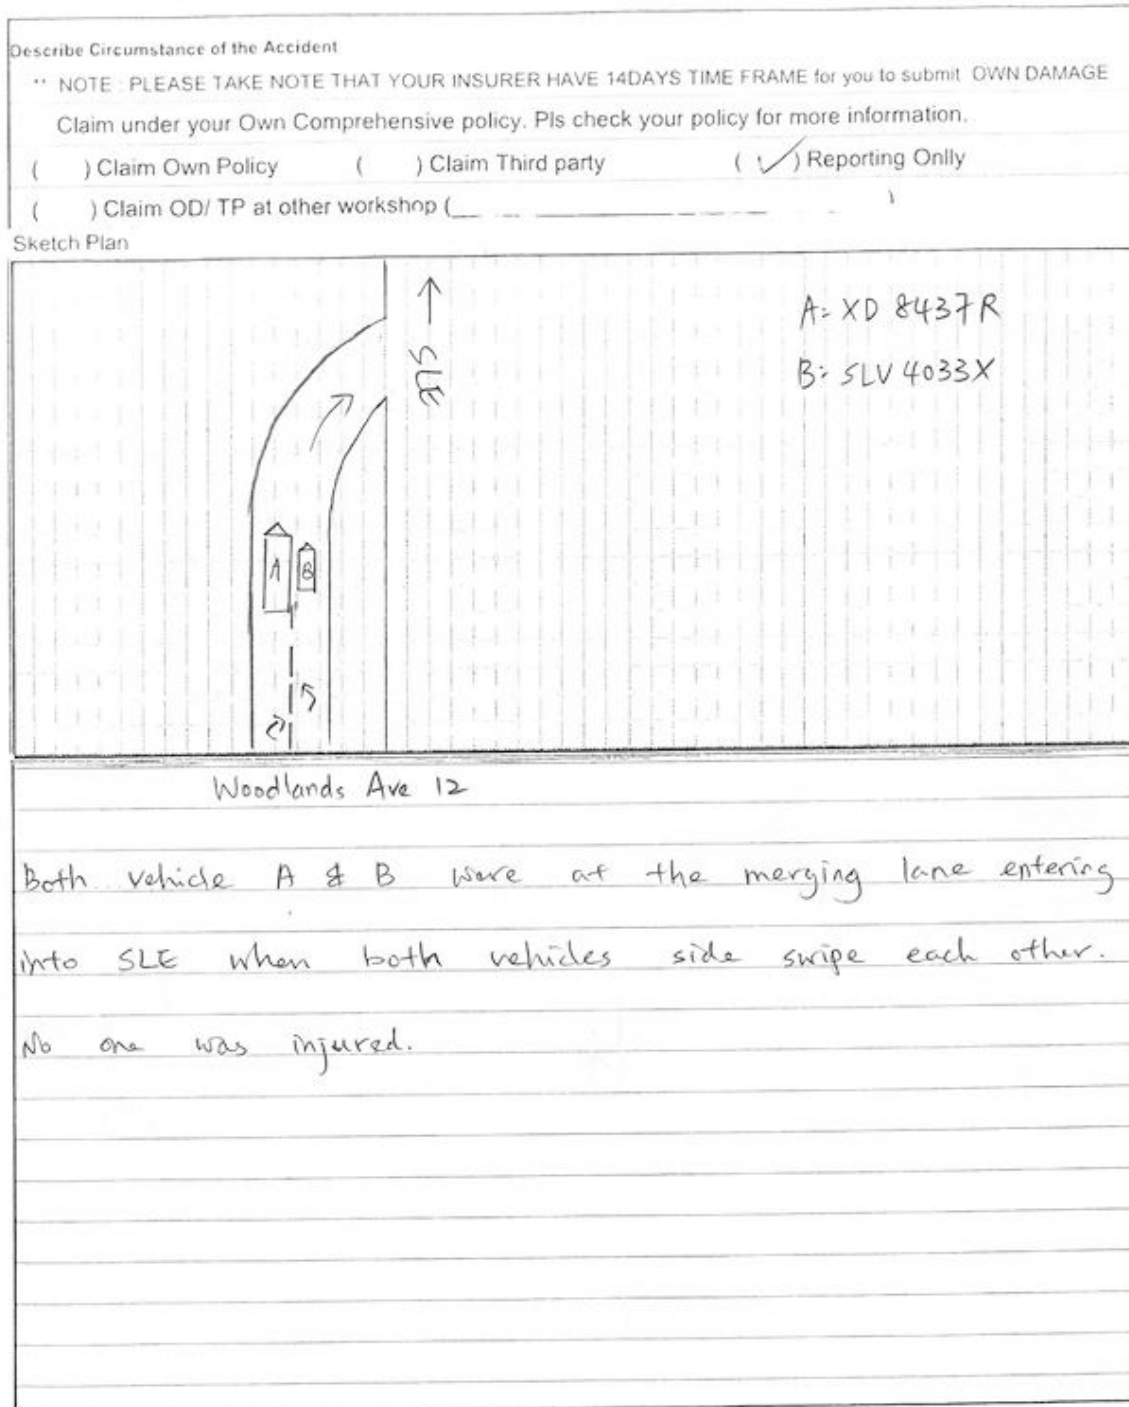 Describe Circumstance of the Accident
** NOTE : PLEASE TAKE NOTE THAT YOUR INSURER HAVE 14DAYS TIME FRAME for you to submit OWN DAMAGE
Claim under your Own Comprehensive policy. Pls check your policy for more information.
( ) Claim Own Policy ( ) Claim Third party ( ✓ ) Reporting Onlly
( ) Claim OD/ TP at other workshop (____________)
Sketch Plan
SLE →
A: XD 8437R
B: SLV 4033X
A B
Woodlands Ave 12
Both vehicle A & B were at the merging lane entering
into SLE when both vehicles side swipe each other.
No one was injured.